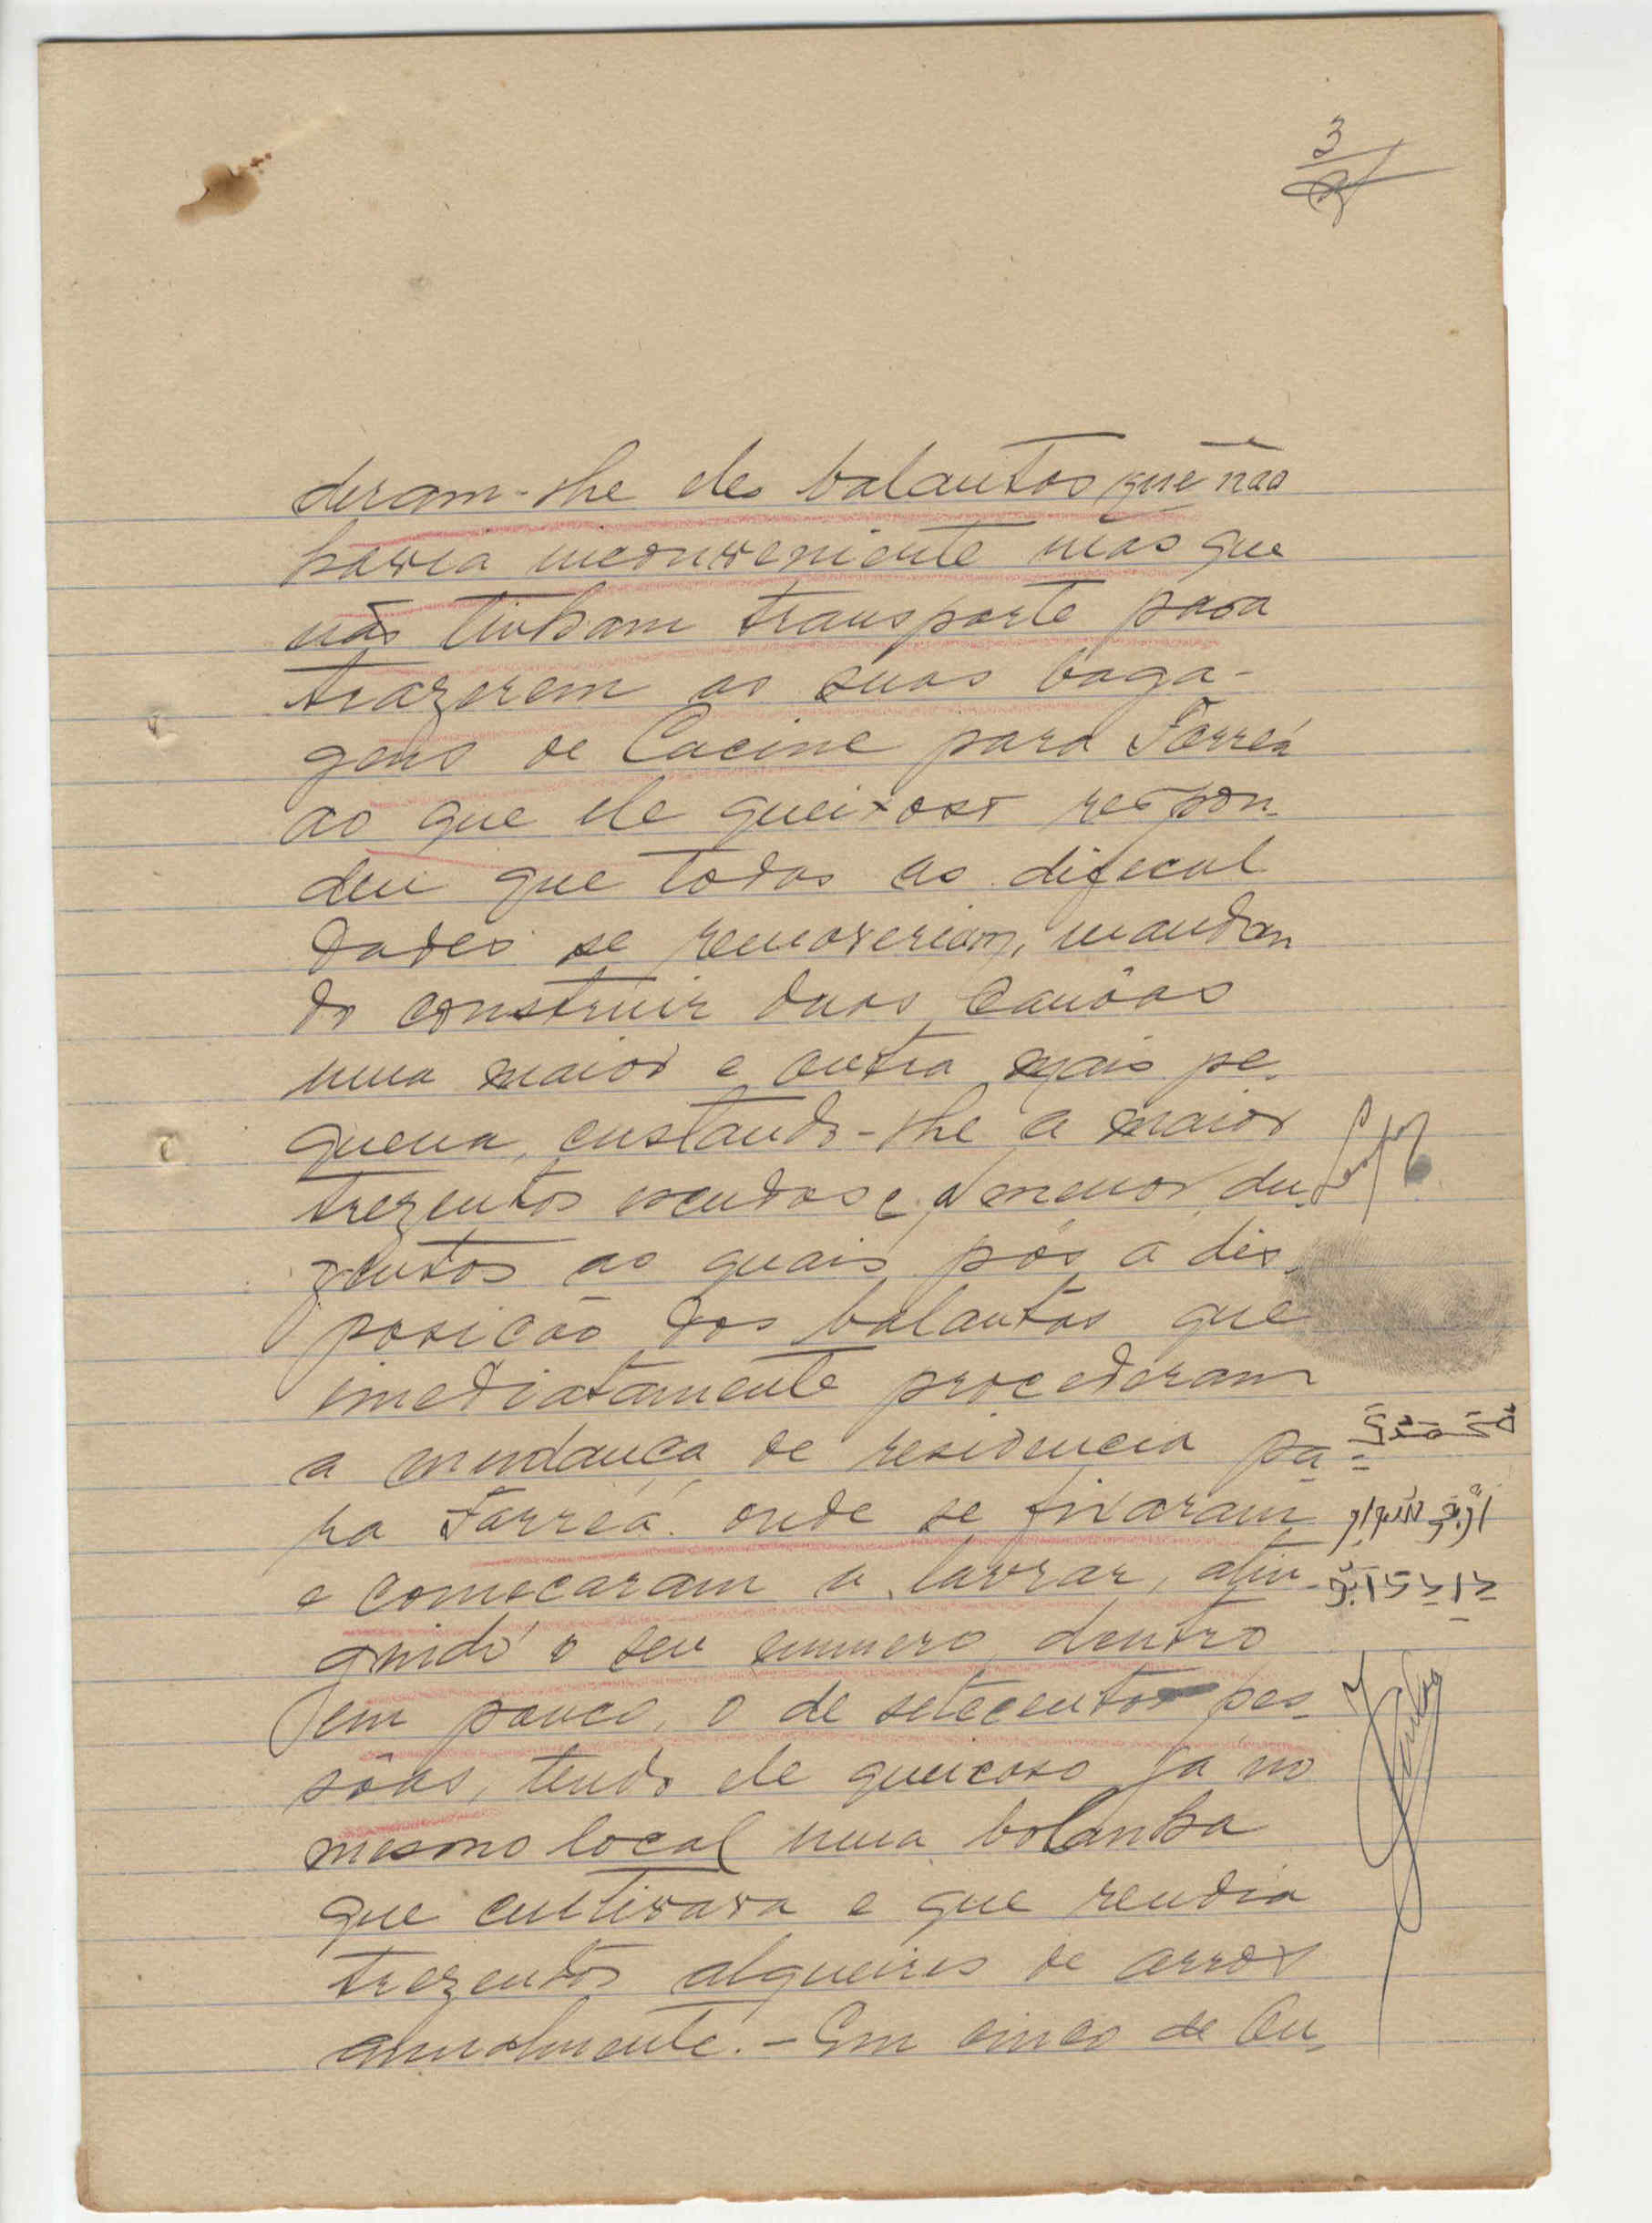 3
deram-lhe eles balantas que não
havia inconveniente mas que
não tinham transporte para
trazerem as suas baga-
gens de Cacine para Farreá
ao que ele queixoso respon-
deu que todas as dificul
dades se removeriam, mandan
do construir duas canôas
uma maior e outra mais pe-
quena, custando-lhe a maior
trezentos escudos e a menor du-
zentos as quais pôs á dis-
posição dos balantas que
imediatamente procederam
a mudança de residencia pa-
ra Farreá. onde se fixaram
e começaram a lavrar, atin-
guido o seu numero, dentro
em pouco, o de setecentos pes-
sôas, tendo ele queicoso ja no
mesmo local uma bolanha
que cultivava e que rendia
trezentos alqueires de arroz
anualmente. - Em cinco de Ou-